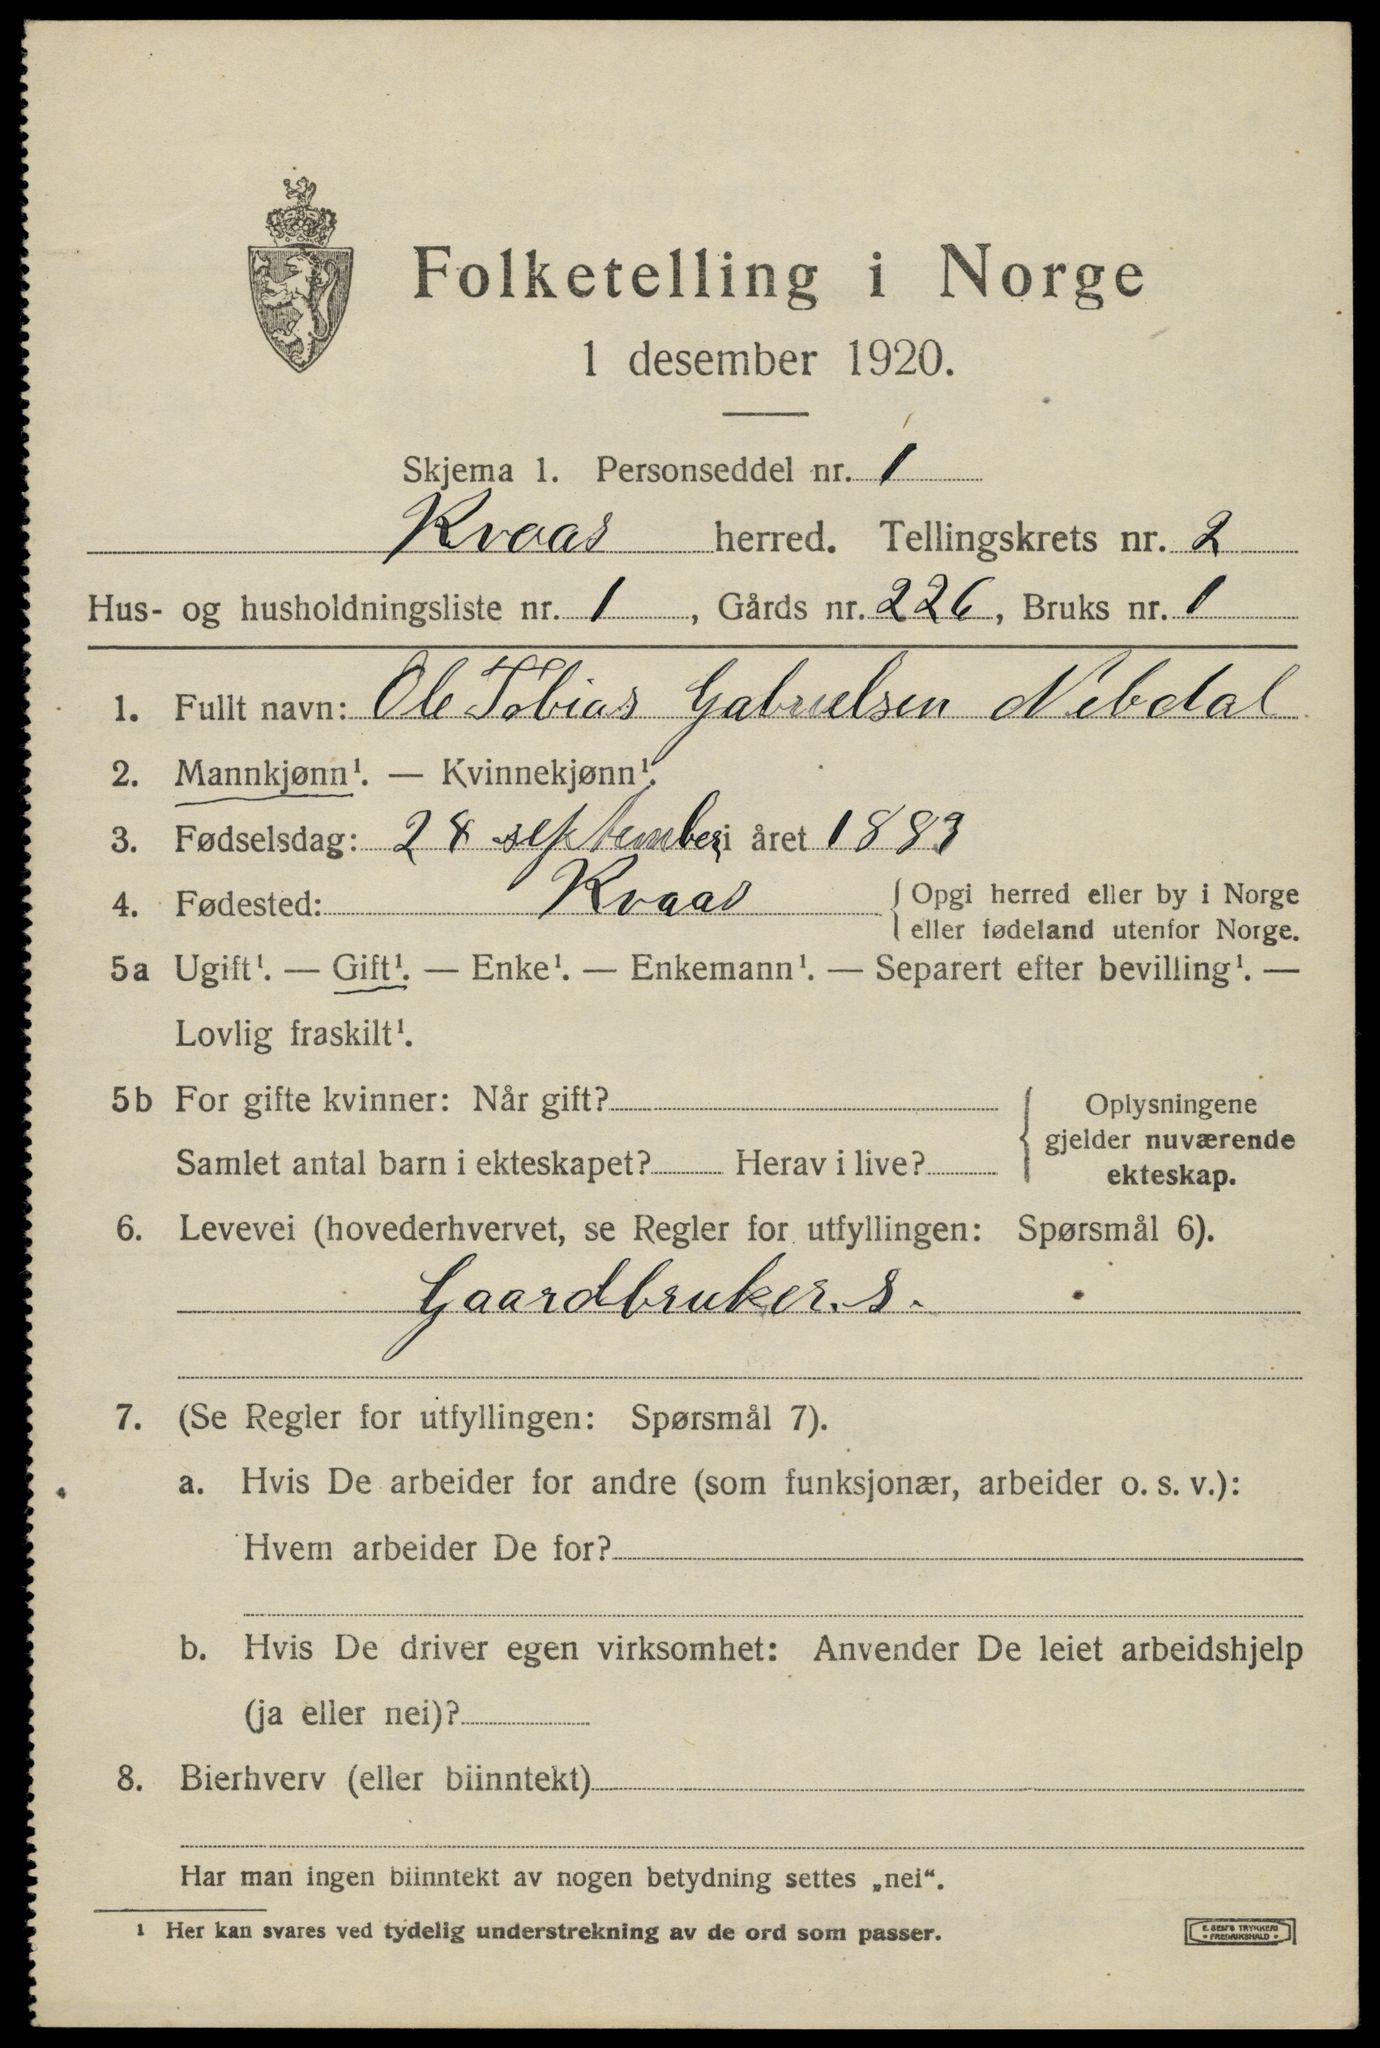 Folketelling i Norge
1 desember 1920.
Skjema 1. Personseddel nr. 1
Kvaas herred. Tellingskrets nr. 2
Hus- og husholdningsliste nr. 1, Gårds nr. 226, Bruks nr. 1
1. Fullt navn: Ole Tobias Gabrielsen Nebdal
2. Mannkjønn¹. — Kvinnekjønn¹.
3. Fødselsdag: 28 september i året 1883
4. Fødested: Kvaas { Opgi herred eller by i Norge
eller fødeland utenfor Norge.
5a Ugift¹. — Gift¹. — Enke¹. — Enkemann¹. — Separert efter bevilling¹. —
Lovlig fraskilt¹.
5b For gifte kvinner: Når gift?
Samlet antal barn i ekteskapet? Herav i live?
{ Oplysningene
gjelder nuværende
ekteskap.
6. Levevei (hovederhvervet, se Regler for utfyllingen: Spørsmål 6).
Gaardbruker. s.
7. (Se Regler for utfyllingen: Spørsmål 7).
a. Hvis De arbeider for andre (som funksjonær, arbeider o. s. v.):
Hvem arbeider De for?
b. Hvis De driver egen virksomhet: Anvender De leiet arbeidshjelp
(ja eller nei)?
8. Bierhverv (eller biinntekt)
Har man ingen biinntekt av nogen betydning settes „nei“.
¹ Her kan svares ved tydelig understrekning av de ord som passer.
E. SEM'S TRYKKERI
• FREDRIKSHALD •